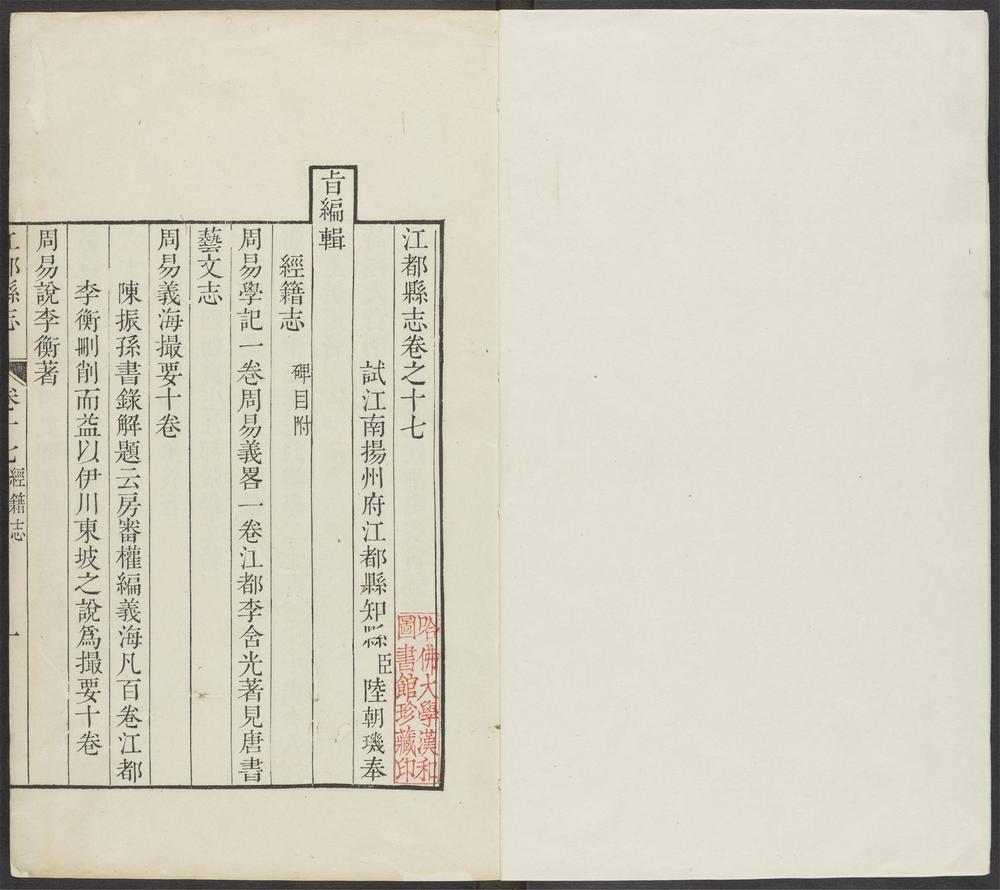 江都縣志卷之十七
試江南揚州府江都縣知縣臣陸朝璣奉
旨編輯
經籍志 碑目附
周易學記一卷周易義畧一卷江都李含光著見唐書
藝文志
周易義海撮要十卷
陳振孫書錄解題云房審權編義海凡百卷江都
李衡刪削而益以伊川東坡之說爲撮要十卷
周易說李衡著
江都縣志 卷十七 經籍志 一
哈佛大學漢和
圖書館珍藏印